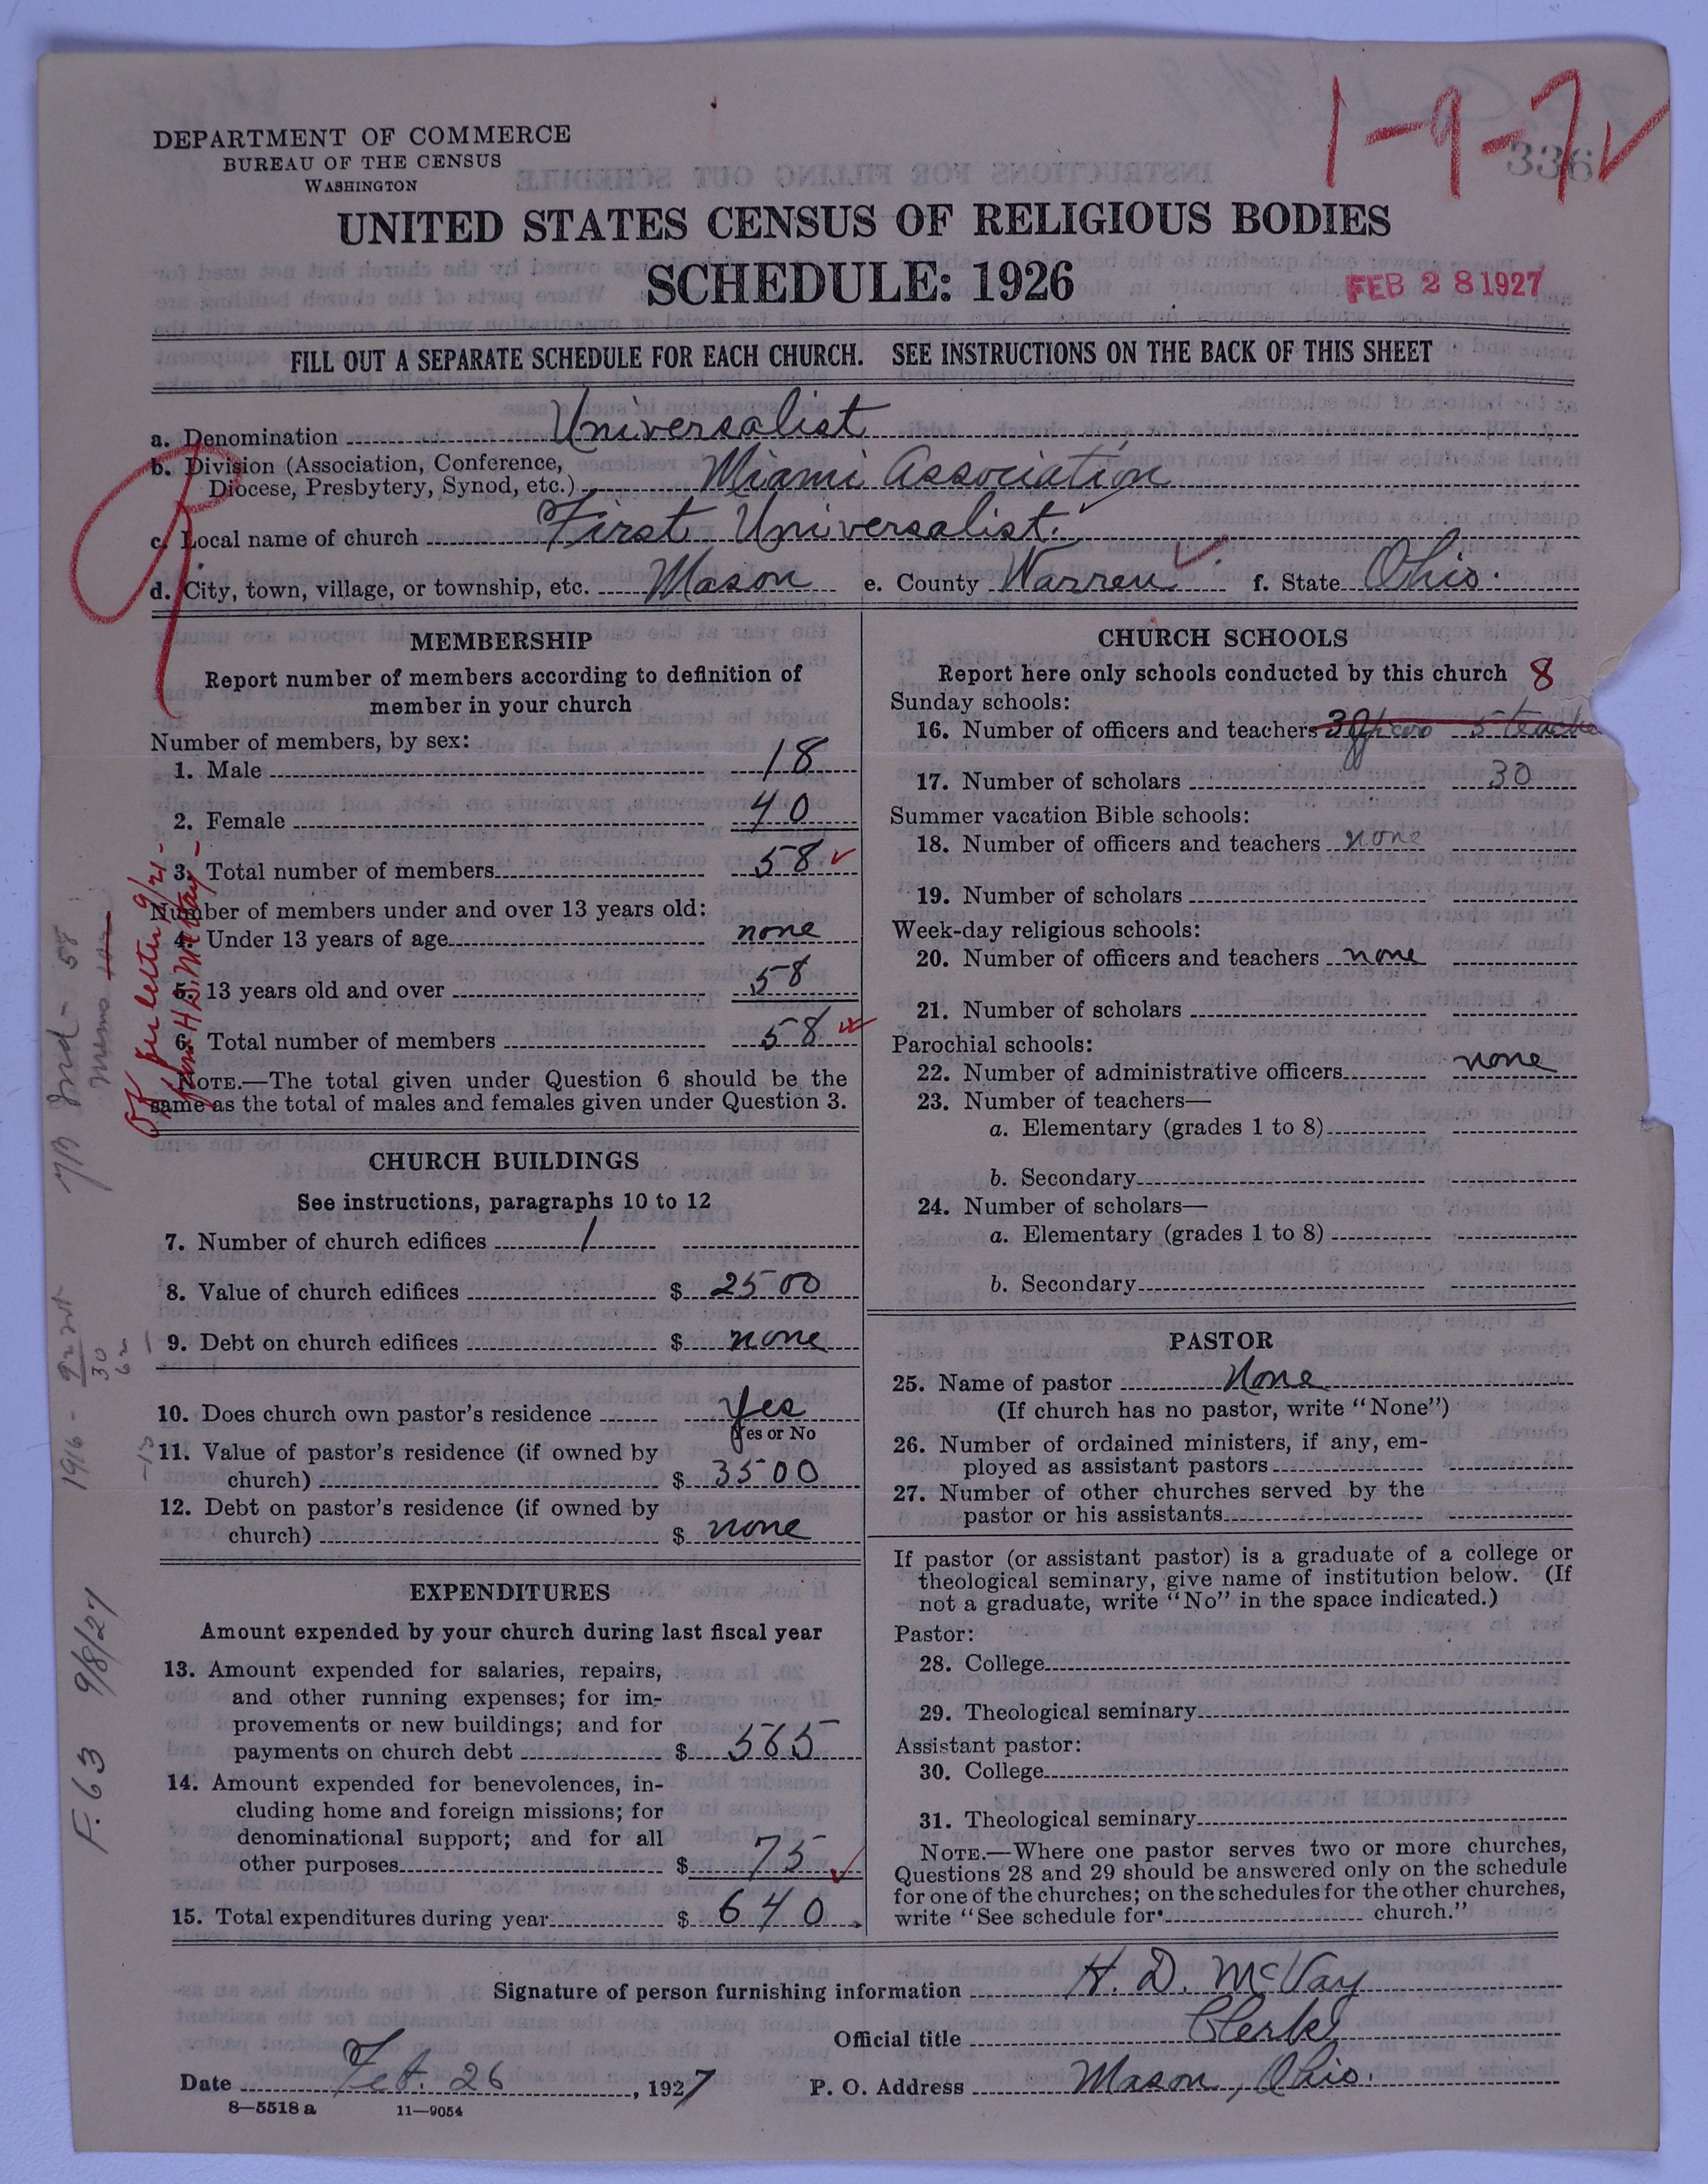 1-9-7✓
336
DEPARTMENT OF COMMERCE
BUREAU OF THE CENSUS
WASHINGTON
UNITED STATES CENSUS OF RELIGIOUS BODIES
SCHEDULE: 1926
FEB 28 1927
FILL OUT A SEPARATE SCHEDULE FOR EACH CHURCH. SEE INSTRUCTIONS ON THE BACK OF THIS SHEET
a. Denomination Universalist
b. Division (Association, Conference,
Diocese, Presbytery, Synod, etc.) Miami Association
c. Local name of church First Universalist.
d. City, town, village, or township, etc. Mason e. County Warren ✓ f. State Ohio.
MEMBERSHIP
Report number of members according to definition of
member in your church
Number of members, by sex:
1. Male 18
2. Female 40
3. Total number of members 58 ✓
Number of members under and over 13 years old:
4. Under 13 years of age none
5. 13 years old and over 58
6. Total number of members 58
NOTE.—The total given under Question 6 should be the
same as the total of males and females given under Question 3.
OK per letter 9/21-
CHURCH BUILDINGS
See instructions, paragraphs 10 to 12
7. Number of church edifices 1
8. Value of church edifices $ 2500
9. Debt on church edifices $ none
10. Does church own pastor's residence Yes
(Yes or No
11. Value of pastor's residence (if owned by
church) $ 3500
12. Debt on pastor's residence (if owned by
church) $ none
EXPENDITURES
Amount expended by your church during last fiscal year
13. Amount expended for salaries, repairs,
and other running expenses; for im-
provements or new buildings; and for
payments on church debt $ 565
14. Amount expended for benevolences, in-
cluding home and foreign missions; for
denominational support; and for all
other purposes $ 75 ✓
15. Total expenditures during year $ 640.
F. 63 9/8/27
CHURCH SCHOOLS
Report here only schools conducted by this church 8
Sunday schools:
16. Number of officers and teachers
17. Number of scholars 30
Summer vacation Bible schools:
18. Number of officers and teachers none
19. Number of scholars
Week-day religious schools:
20. Number of officers and teachers none
21. Number of scholars
Parochial schools:
22. Number of administrative officers none
23. Number of teachers—
a. Elementary (grades 1 to 8)
b. Secondary
24. Number of scholars—
a. Elementary (grades 1 to 8)
b. Secondary
PASTOR
25. Name of pastor None
(If church has no pastor, write "None")
26. Number of ordained ministers, if any, em-
ployed as assistant pastors
27. Number of other churches served by the
pastor or his assistants
If pastor (or assistant pastor) is a graduate of a college or
theological seminary, give name of institution below. (If
not a graduate, write "No" in the space indicated.)
Pastor:
28. College
29. Theological seminary
Assistant pastor:
30. College
31. Theological seminary
NOTE.—Where one pastor serves two or more churches,
Questions 28 and 29 should be answered only on the schedule
for one of the churches; on the schedules for the other churches,
write "See schedule for church."
Signature of person furnishing information H. D. McVay
Official title Clerk
Date Feb. 26, 1927 P. O. Address Mason, Ohio.
8—5518 a 11—9054